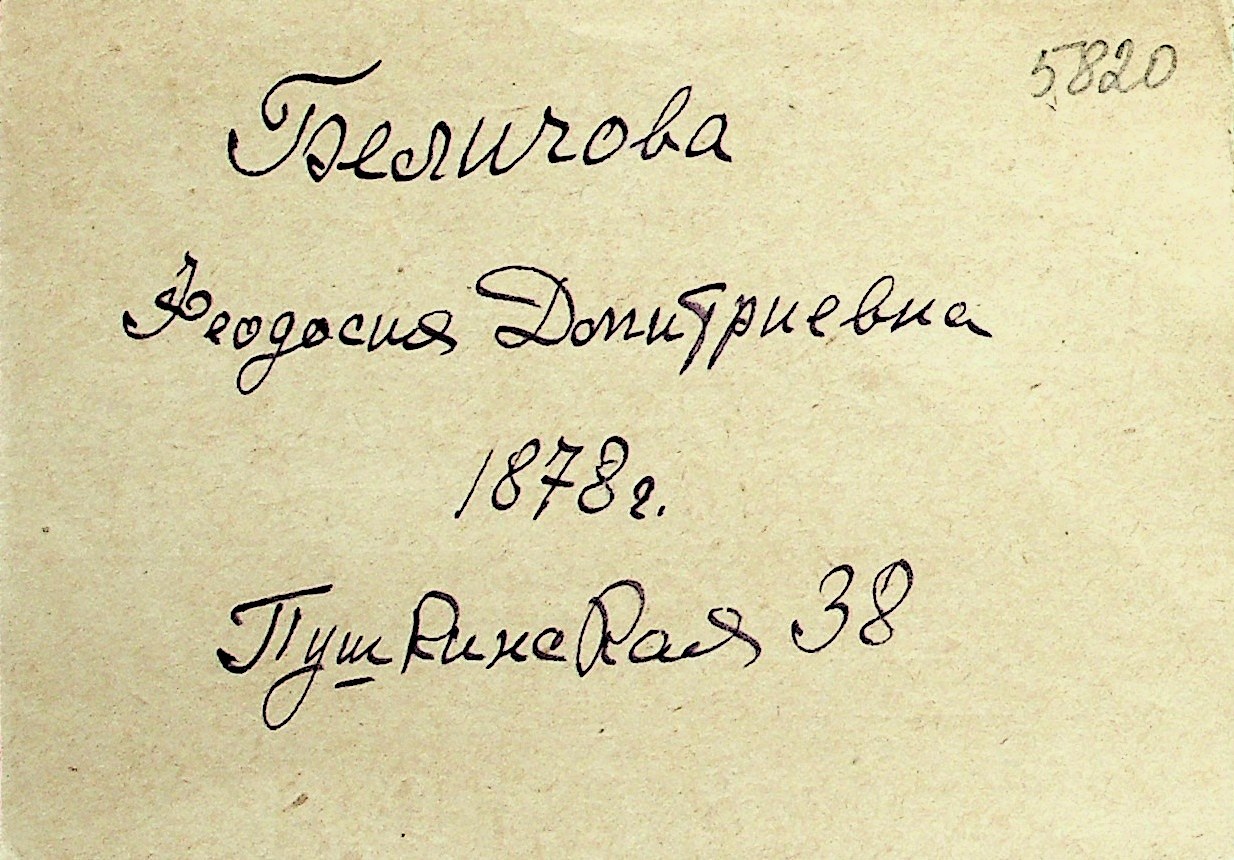 5820
Беличова
Феодосия Дмитриевна
1878г.
Пушкинская 38